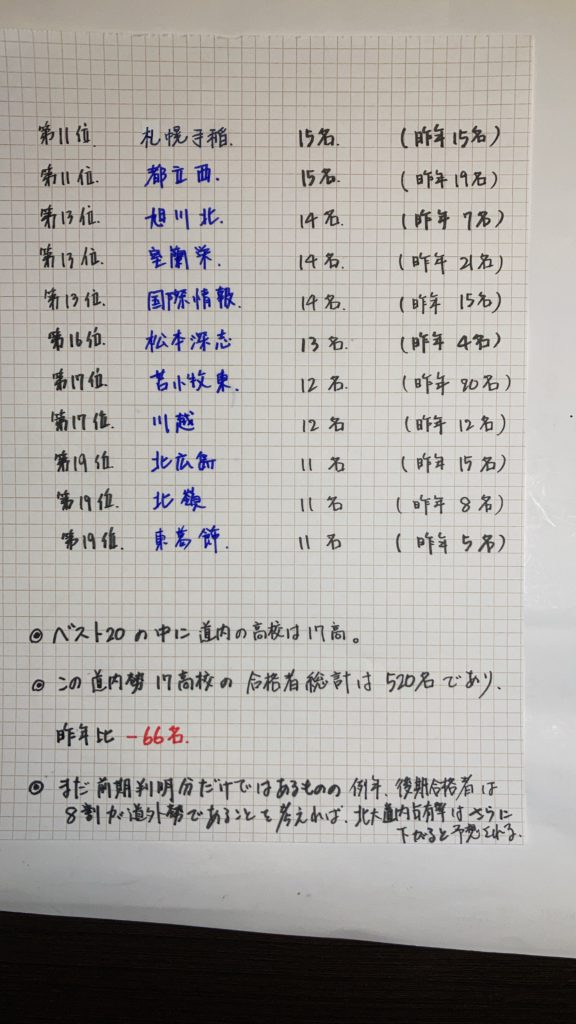 第11位. 札幌手稲. 15名. (昨年15名)
第11位. 都立西. 15名. (昨年19名)
第13位 旭川北. 14名. (昨年 7名)
第13位. 室蘭栄. 14名. (昨年 21名)
第13位. 国際情報. 14名. (昨年 15名)
第16位. 松本深志 13名. (昨年 4名)
第17位 苫小牧東. 12名. (昨年 20名)
第17位. 川越 12名. (昨年 12名)
第19位 北広島 11名 (昨年 15名)
第19位. 北嶺 11名 (昨年 8名)
第19位. 東葛飾. 11名 (昨年 5名)
◎ ベスト20の中に道内の高校は17高。
◎ この道内勢17高校の合格者総計は520名であり、
昨年比 -66名.
◎ まだ前期判明分だけではあるものの例年、後期合格者は
8割が道外勢であることを考えれば、北大道内占有率はさらに
下がると予想される.